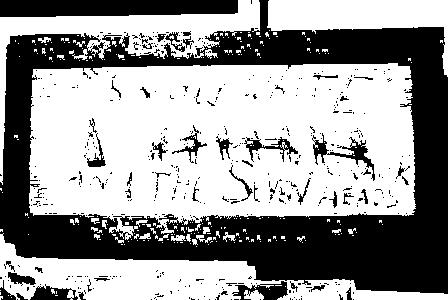 SNOW WHITE
AND THE SEVEN HEADS